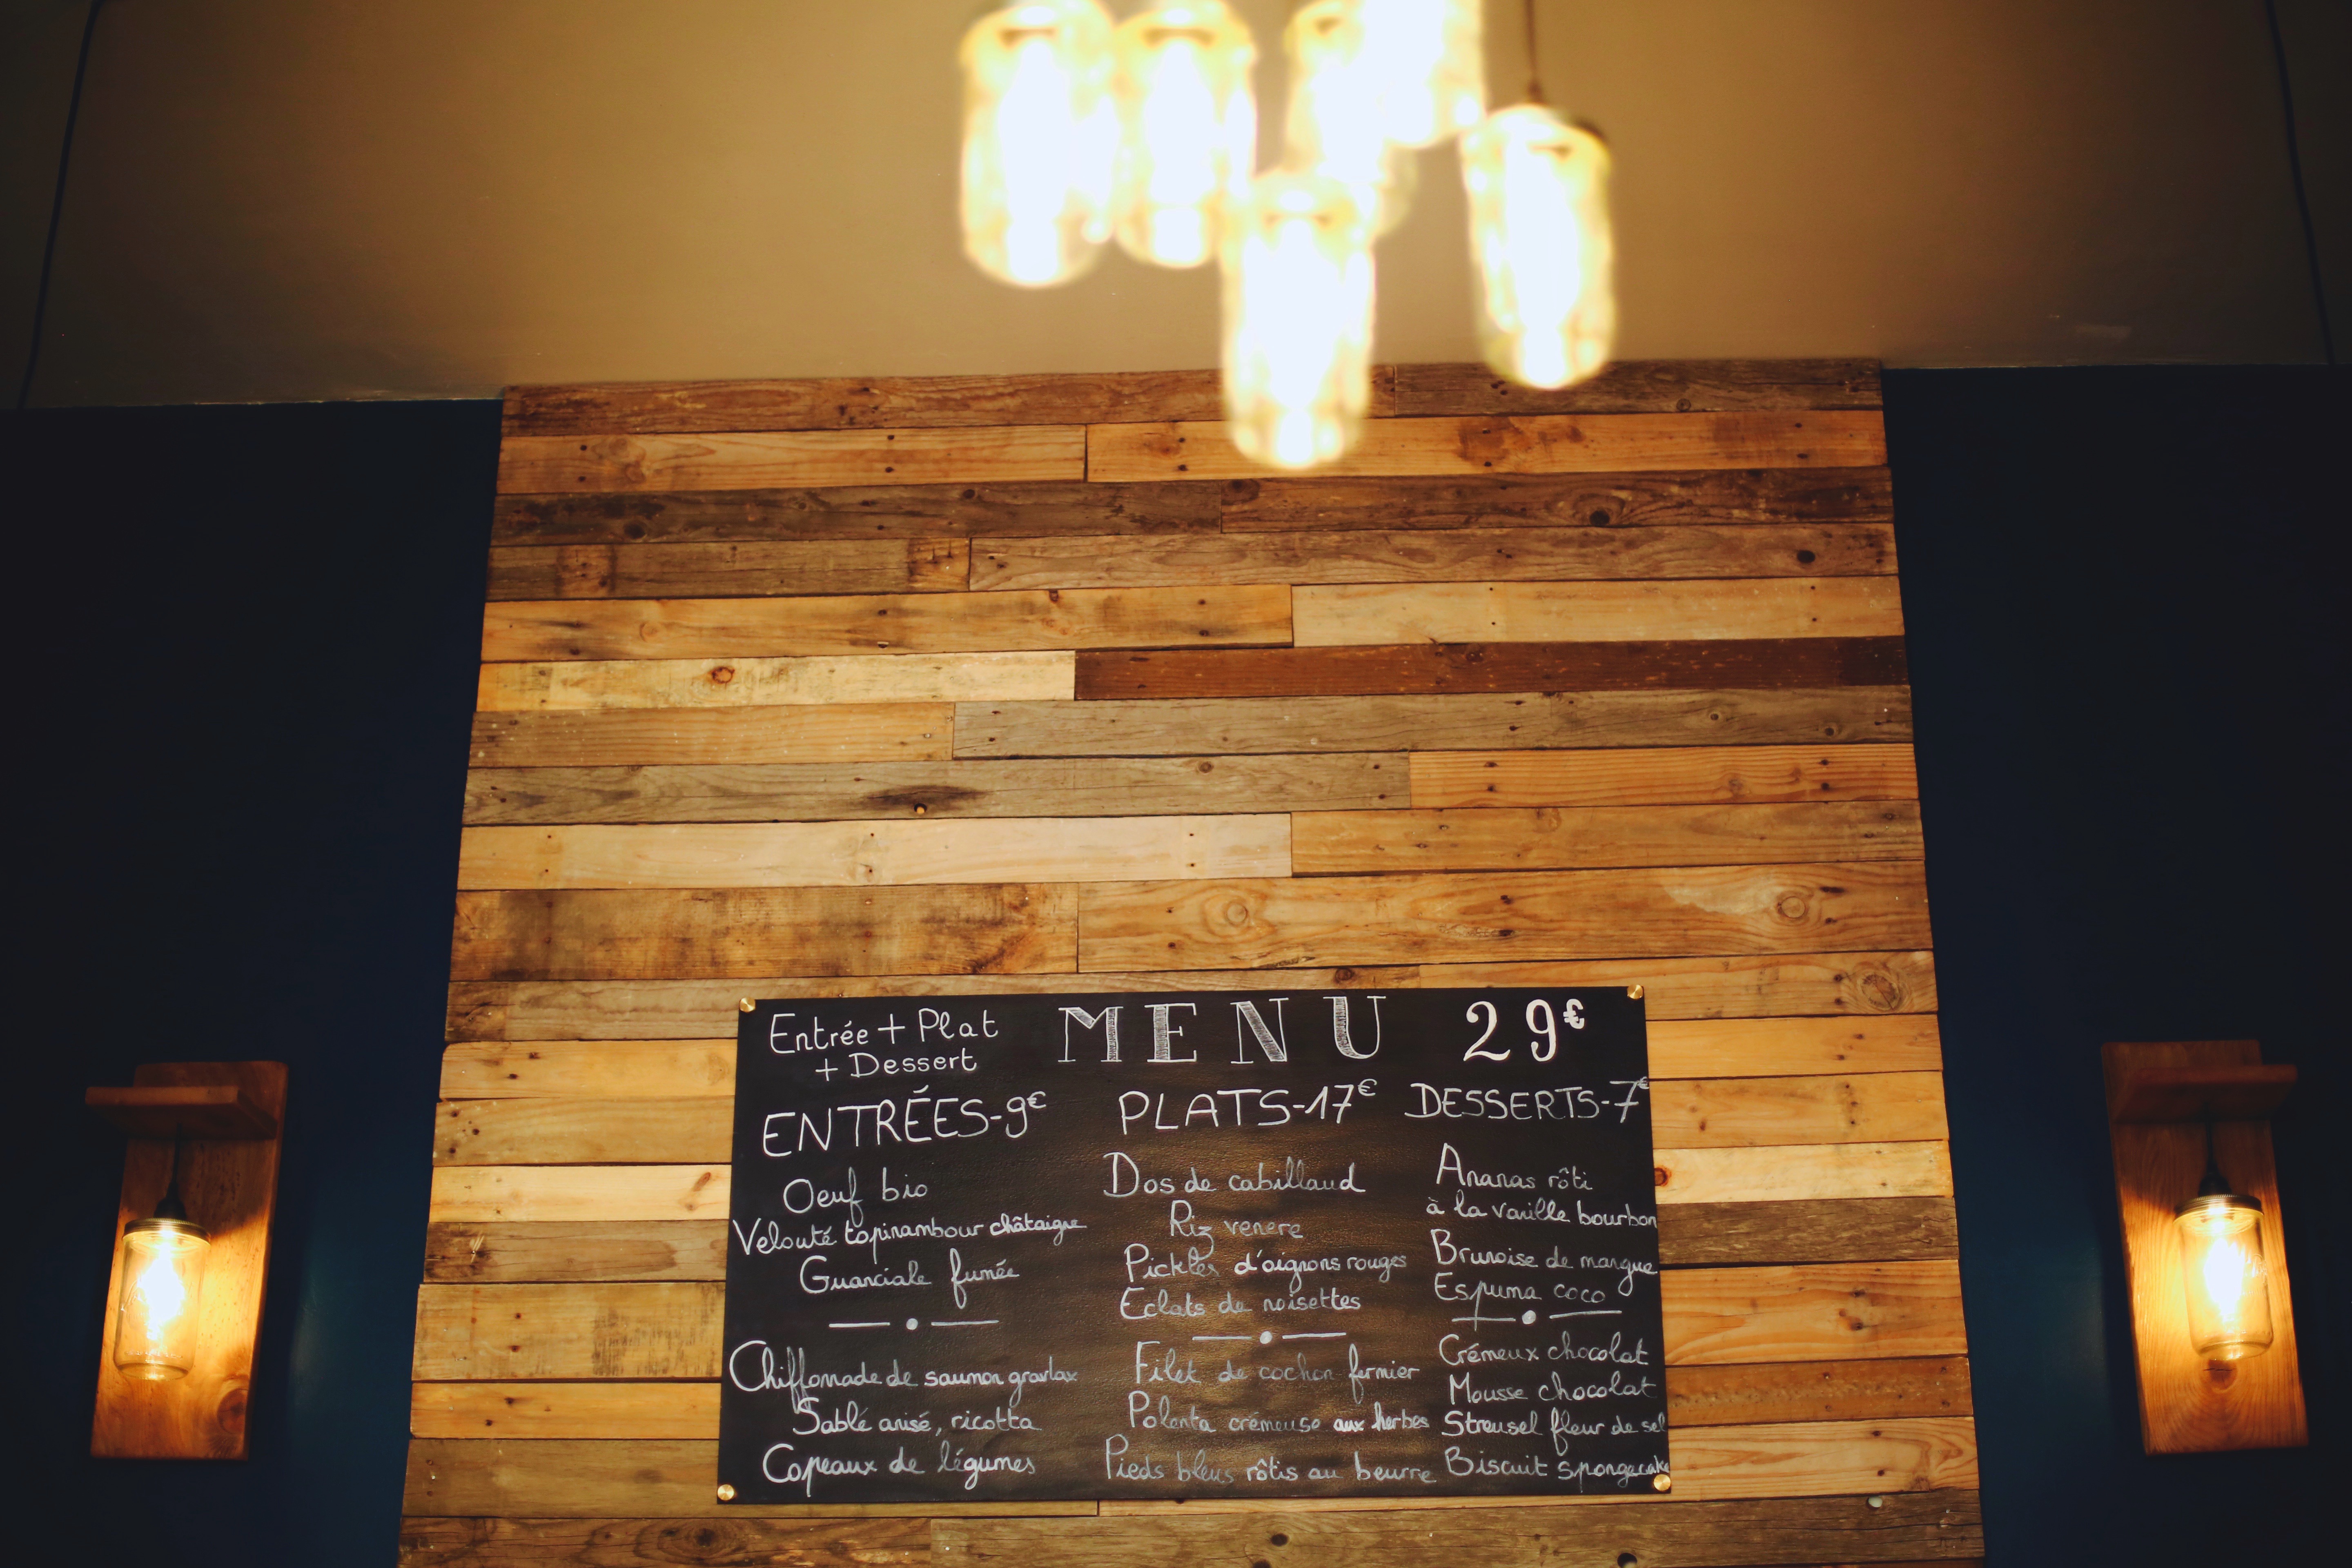 Entrée + Plat
+ Dessert
MENU
29€
ENTRÉES-9€
Oeuf bio
Velouté topinambour châtaigne
Guanciale fumée
Chiffonnade de saumon gravlax
Sablé anisé, ricotta
Copeaux de légumes
PLATS-17€
Dos de cabillaud
Riz venere
Pickles d'oignons rouges
Eclats de noisettes
Filet de cochon fermier
Polenta crémeuse aux herbes
Pieds bleus rôtis au beurre
DESSERTS-7€
Ananas rôti
à la vanille bourbon
Brunoise de mangue
Espuma coco
Crémeux chocolat
Mousse chocolat
Streusel fleur de sel
Biscuit spongecake